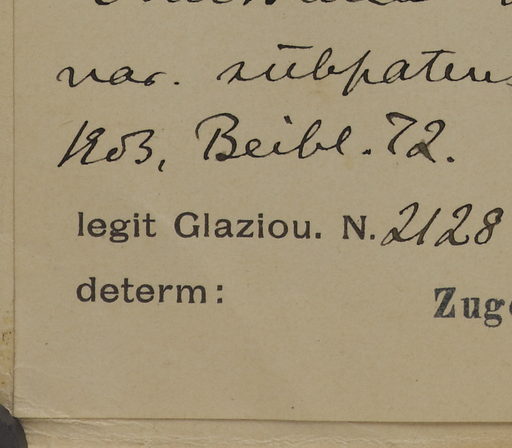 var. subpatens
1903, Beibl. 72.
legit Glaziou. N. 2128
determ:
Zug